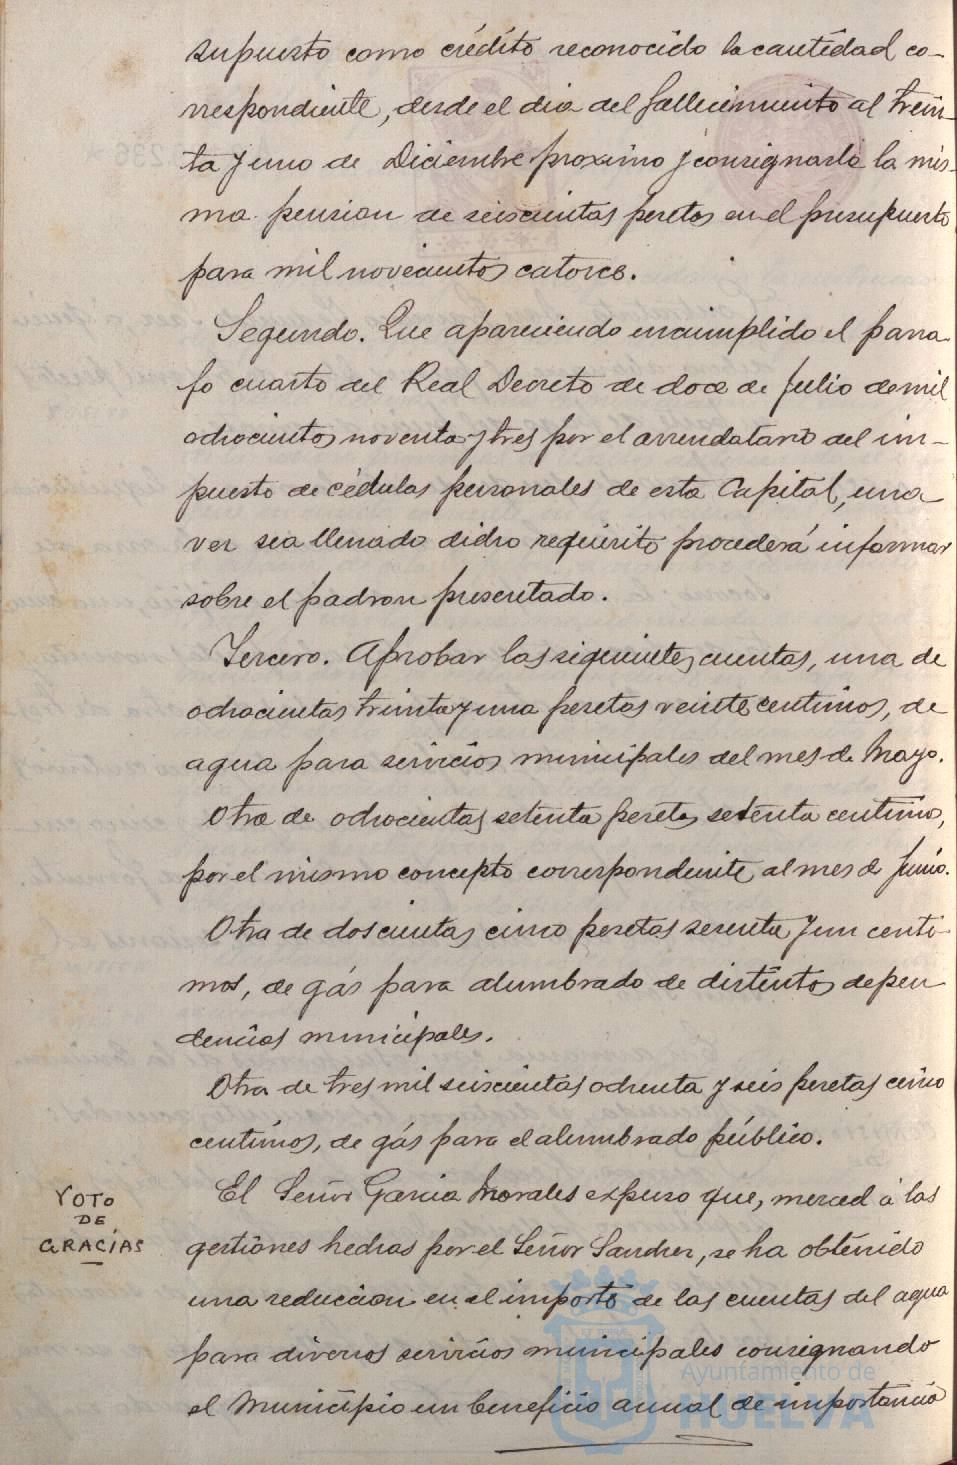 supuesto como crédito reconocido la cantidad co-
rrespondiente, desde el dia del fallecimiento al trein-
ta y uno de Diciembre próximo y consignarle la mis-
ma pension de seiscientas pesetas en el presupuesto
para mil novecientos catorce.
Segundo. Que apareciendo incumplido el parra-
fo cuarto del Real Decreto de doce de Julio de mil
ochocientos noventa y tres por el arrendatario del im-
puesto de cédulas personales de esta Capital, una
vez sea llenado dicho requisito procederá informar
sobre el padron presentado.
Tercero. Aprobar las siguientes cuentas, una de
ochocientas treinta y una pesetas veinte centimos, de
agua para servicios municipales del mes de Mayo.
Otra de ochocientas setenta pesetas setenta centimos,
por el mismo concepto correspondiente al mes de Junio.
Otra de doscientas cinco pesetas sesenta y un centi-
mos, de gás para alumbrado de distintos depen
dencias municipales.
Otra de tres mil seiscientas ochenta y seis pesetas cinco
centimos, de gás para el alumbrado público.
VOTO
DE
GRACIAS
El Señor Garcia Morales expuso que, merced á las
gestiones hechas por el Señor Sanchez, se ha obtenido
una reduccion en el importe de las cuentas del agua
para diversos servicios municipales consignando
el Municipio un beneficio anual de importancia
Ayuntamiento de
HUELVA